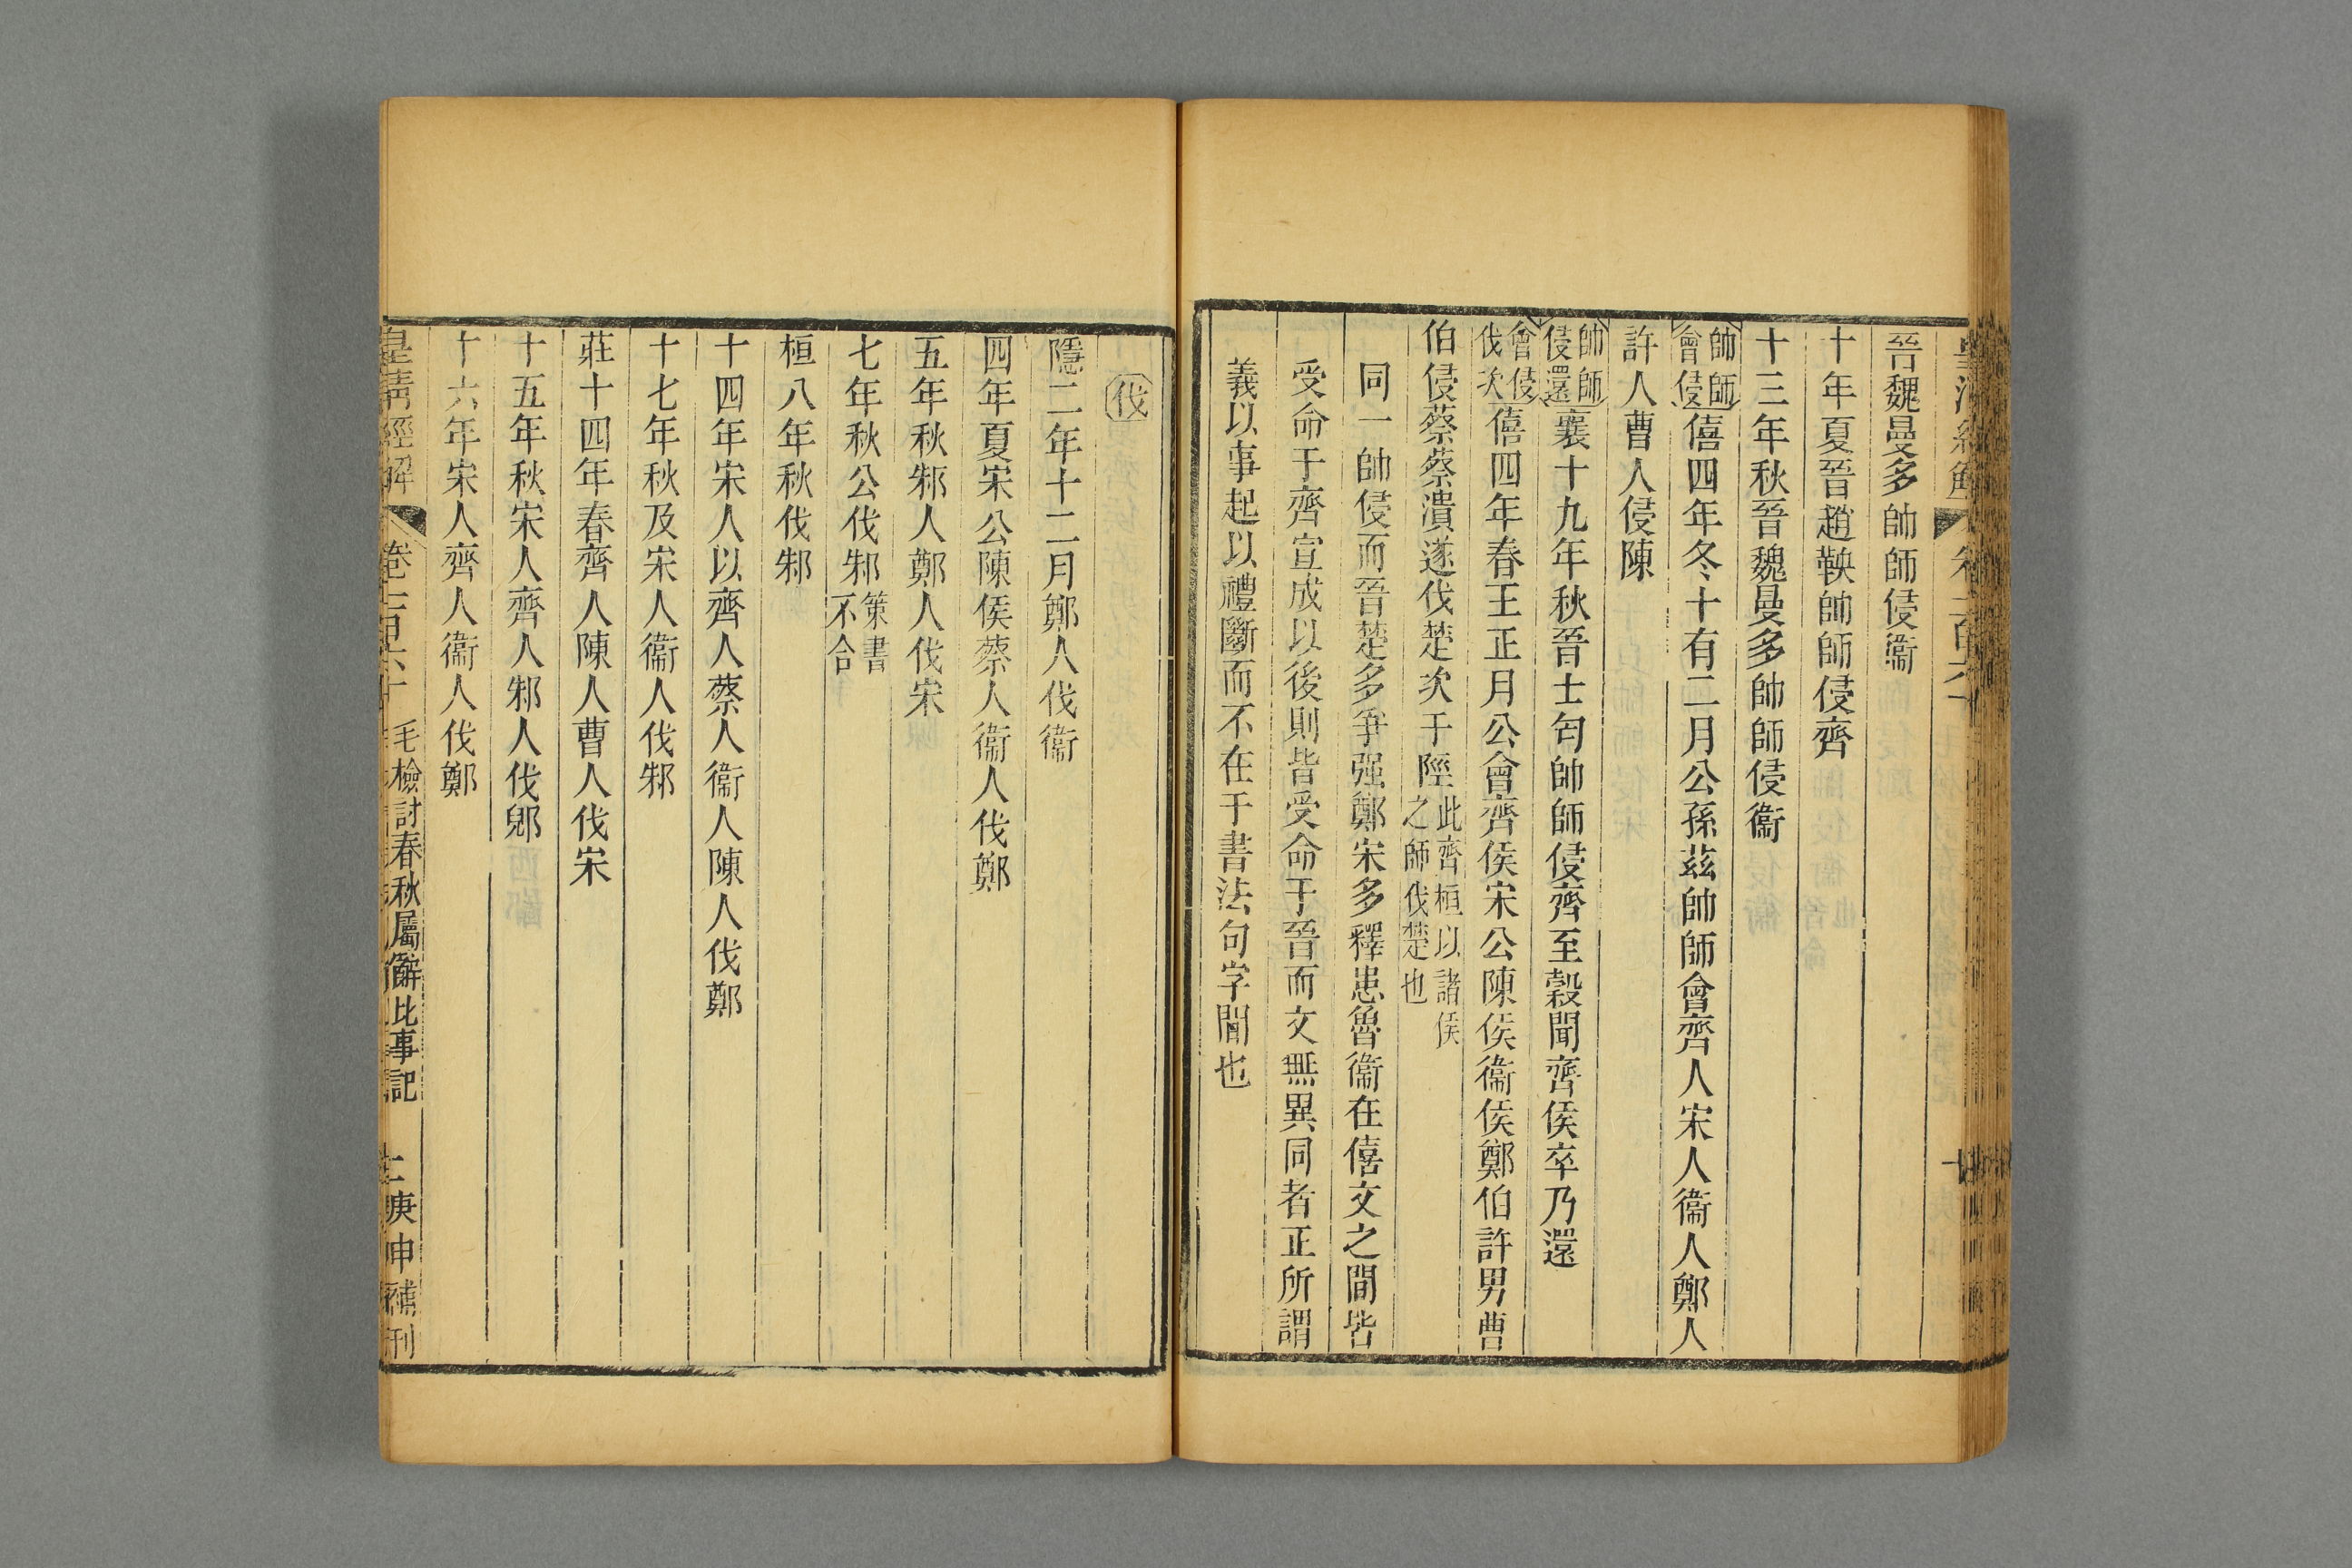 晉魏曼多帥師侵衞
十年夏晉趙鞅帥師侵齊
十三年秋晉魏曼多帥師侵衞
帥師會侵僖四年冬十有二月公孫茲帥師會齊人宋人衞人鄭人
許人曹人侵陳
帥師侵還襄十九年秋晉士匄帥師侵齊至穀聞齊侯卒乃還
會侵伐次僖四年春王正月公會齊侯宋公陳侯衞侯鄭伯許男曹
伯侵蔡蔡潰遂伐楚次于陘此齊桓以諸侯之師伐楚也
同一帥侵而晉楚多爭强鄭宋多釋患魯衞在僖文之間皆
受命于齊宣成以後則皆受命于晉而文無異同者正所謂
義以事起以禮斷而不在于書法句字間也
伐
隱二年十二月鄭人伐衞
四年夏宋公陳侯蔡人衞人伐鄭
五年秋邾人鄭人伐宋
七年秋公伐邾策書不合
桓八年秋伐邾
十四年宋人以齊人蔡人衞人陳人伐鄭
十七年秋及宋人衞人伐邾
莊十四年春齊人陳人曹人伐宋
十五年秋宋人齊人邾人伐郳
十六年宋人齊人衞人伐鄭
皇清經解 卷一百六十 毛檢討春秋屬辭比事記 庚申補刊